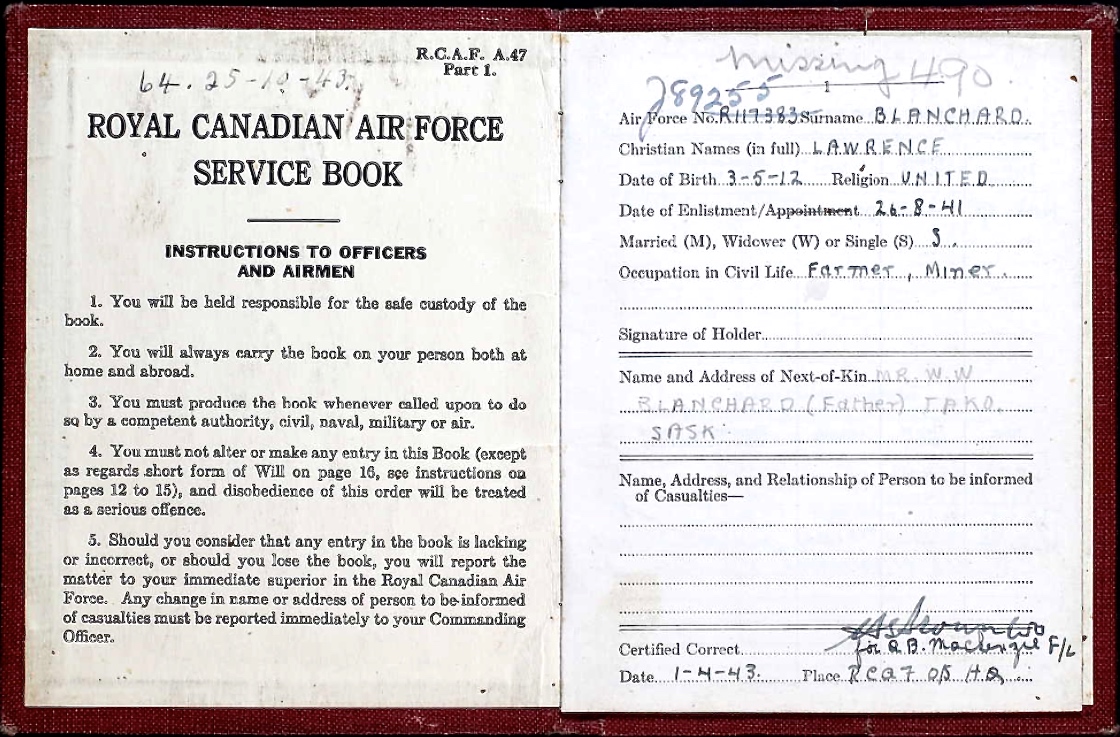 R.C.A.F. A.47
Part 1.
64. 25-10-43.
ROYAL CANADIAN AIR FORCE
SERVICE BOOK
INSTRUCTIONS TO OFFICERS
AND AIRMEN
1. You will be held responsible for the safe custody of the
book.
2. You will always carry the book on your person both at
home and abroad.
3. You must produce the book whenever called upon to do
so by a competent authority, civil, naval, military or air.
4. You must not alter or make any entry in this Book (except
as regards short form of Will on page 16, see instructions on
pages 12 to 15), and disobedience of this order will be treated
as a serious offence.
5. Should you consider that any entry in the book is lacking
or incorrect, or should you lose the book, you will report the
matter to your immediate superior in the Royal Canadian Air
Force. Any change in name or address of person to be informed
of casualties must be reported immediately to your Commanding
Officer.
Missing 490
J89255
1
Air Force No. R117383 Surname BLANCHARD.
Christian Names (in full) LAWRENCE
Date of Birth 3-5-12 Religion UNITED
Date of Enlistment/Appointment 26-8-41
Married (M), Widower (W) or Single (S) S.
Occupation in Civil Life Farmer, Miner.
Signature of Holder
Name and Address of Next-of-Kin MR. W. W
BLANCHARD (Father) TAKO.
SASK
Name, Address, and Relationship of Person to be informed
of Casualties—
Certified Correct
for A.B. MacKenzie F/L
Date 1-4-43. Place RCAF O/S HQ